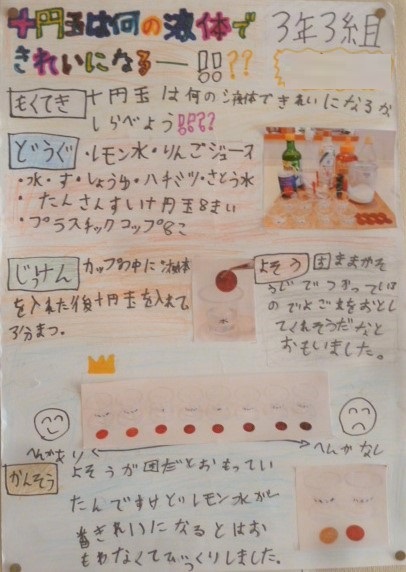 十円玉は何の液体で
きれいになるー!!??
3年3組
もくてき 十円玉は何の液体できれいになるか
しらべよう!!??
どうぐ ・レモン水・りんごジュース
・水・す・しょうゆ・ハチミツ・さとう水
・たんさんすい十円玉8まい
・プラスチックコップ8こ
じっけん カップの中に液体
を入れた後十円玉を入れて
3分まつ。
よそう 回ままがそ
うじでつかっている
のでよごれをおとし
てくれそうだなと
おもいました。
へんかあり
へんかなし
かんそう よそうが回だとおもってい
たんですけどレモン水が
きれいになるとはお
もわなくてびっくりしました。